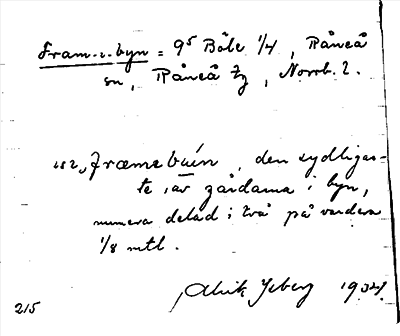 Fram-i-byn = 9⁵ Böle 1/4, Råneå
sn, Råneå tg, Norrb. l.
den sydligas-
te av gårdarna i byn,
numera delad i två på vardera
1/8 mtl.
1934
215